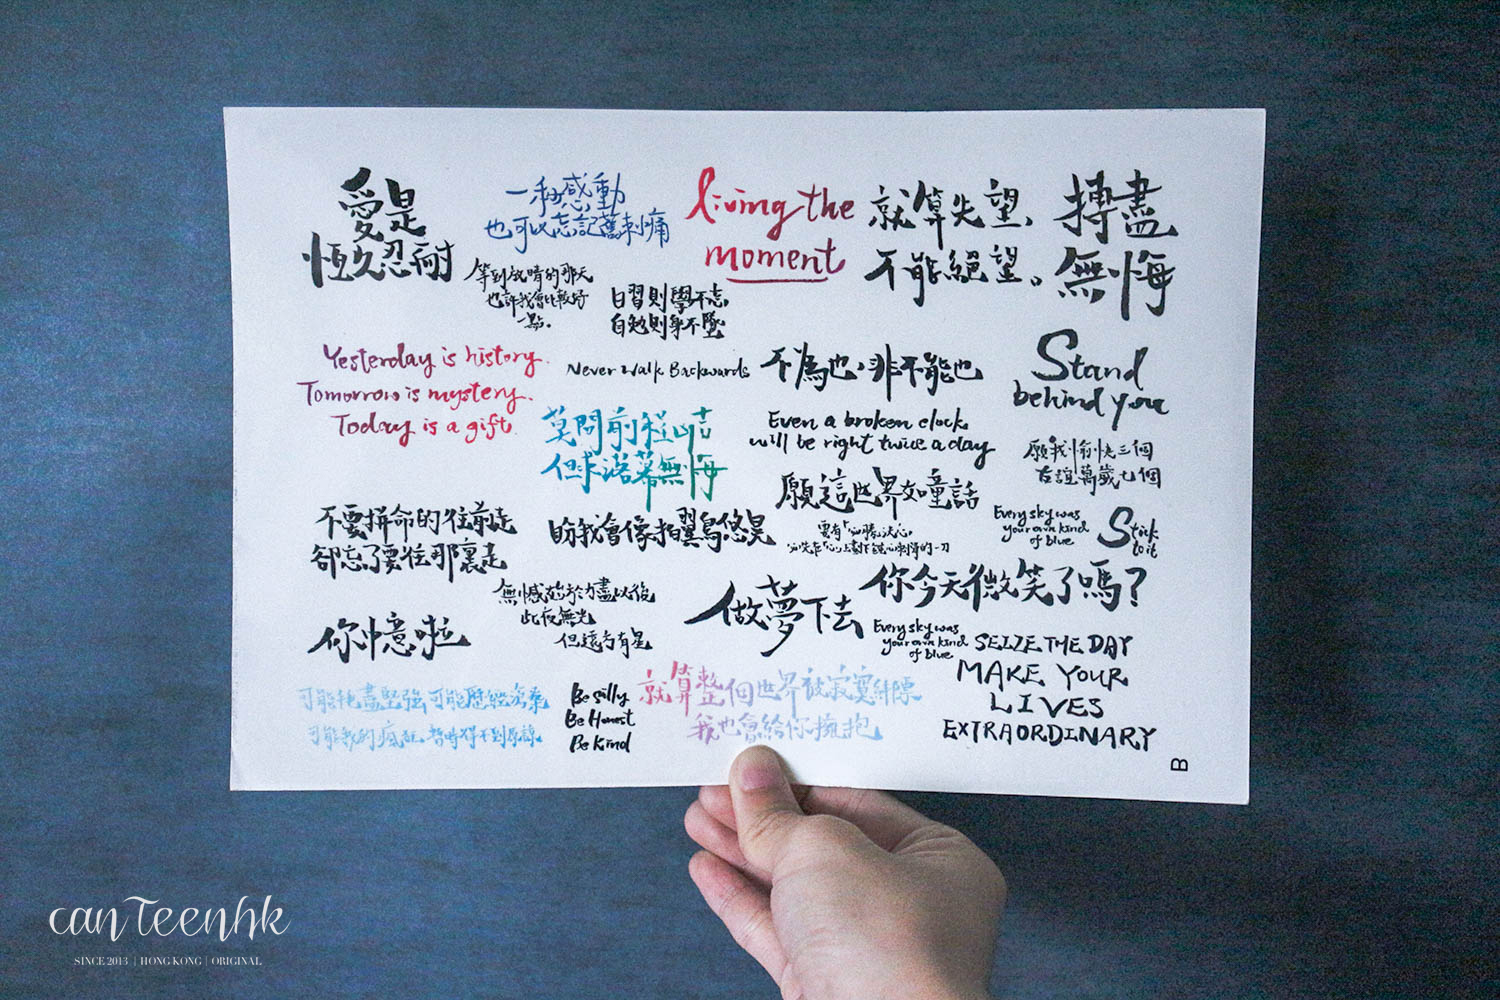 愛是
恆久忍耐
一秒感動
也可以忘記舊刺痛
living the
moment
就算失望，
不能絕望。
搏盡
無悔
等到放晴的那天
也許我會比較好
一點。
日習則學不忘
自勉則身不墜
Yesterday is history.
Tomorrow is mystery.
Today is a gift.
Never Walk Backwards
不為也，非不能也
Stand
behind you
莫問前程凶吉
但求落幕無悔
Even a broken clock
will be right twice a day
願我愉快三個
友誼萬歲七個
願這世界如童話
不要拼命的往前走
卻忘了要往那裏走
盼我會像拍翼鳥悠旻
要有「必勝決心」
Every sky was
your own kind
of blue
Stick
to it
你今天微笑了嗎？
無憾於盡以後
此夜無光
但遠方有星
做夢下去
你中意啦
Every sky was
your own kind
of blue
SEIZE THE DAY
MAKE YOUR
LIVES
EXTRAORDINARY
可能耗盡堅強 可能歷經滄桑
可能我的瘋狂 暫時得不到原諒
Be silly
Be Honest
Be Kind
就算整個世界被寂寞綁票
我也會給你擁抱
B
canTeenhk
SINCE 2013 | HONG KONG | ORIGINAL